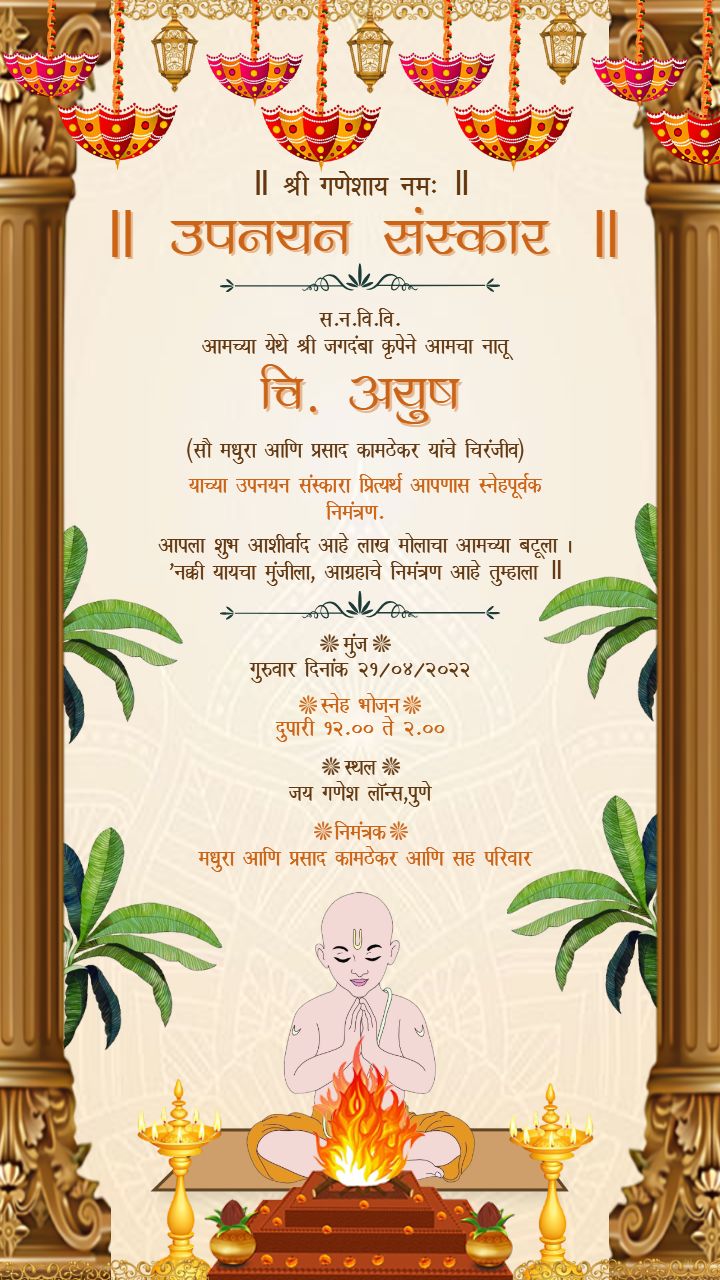 ॥ श्री गणेशाय नमः ॥
॥ उपनयन संस्कार ॥
स.न.वि.वि.
आमच्या येथे श्री जगदंबा कृपेने आमचा नातू
चि. अयुष
(सौ मधुरा आणि प्रसाद कामठेकर यांचे चिरंजीव)
याच्या उपनयन संस्कारा प्रित्यर्थ आपणास स्नेहपूर्वक
निमंत्रण.
आपला शुभ आशीर्वाद आहे लाख मोलाचा आमच्या बटूला ।
'नक्की यायचा मुंजीला, आग्रहाचे निमंत्रण आहे तुम्हाला ॥
मुंज
गुरुवार दिनांक २१/०४/२०२२
स्नेह भोजन
दुपारी १२.०० ते २.००
स्थल
जय गणेश लॉन्स,पुणे
निमंत्रक
मधुरा आणि प्रसाद कामठेकर आणि सह परिवार